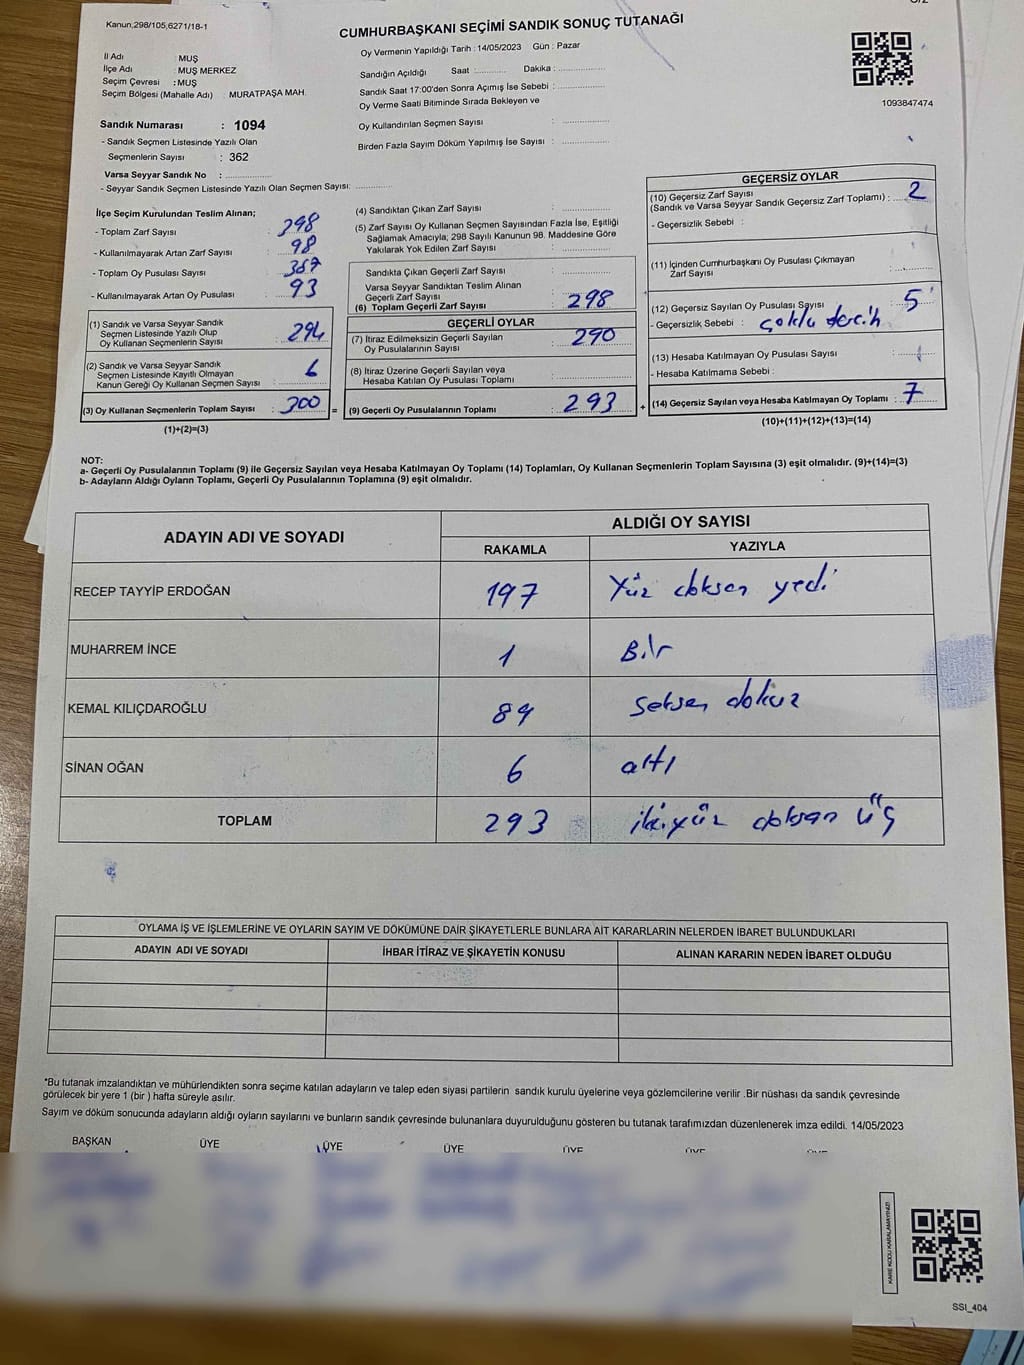 Kanun,298/105,6271/18-1
CUMHURBAŞKANI SEÇİMİ SANDIK SONUÇ TUTANAĞI
İl Adı : MUŞ
İlçe Adı : MUŞ MERKEZ
Seçim Çevresi : MUŞ
Seçim Bölgesi (Mahalle Adı) : MURATPAŞA MAH.
Sandık Numarası : 1094
- Sandık Seçmen Listesinde Yazılı Olan
Seçmenlerin Sayısı : 362
Varsa Seyyar Sandık No :
- Seyyar Sandık Seçmen Listesinde Yazılı Olan Seçmen Sayısı:
Oy Vermenin Yapıldığı Tarih : 14/05/2023 Gün : Pazar
Sandığın Açıldığı Saat : Dakika :
Sandık Saat 17:00'den Sonra Açımış İse Sebebi :
Oy Verme Saati Bitiminde Sırada Bekleyen ve
Oy Kullandırılan Seçmen Sayısı :
Birden Fazla Sayım Döküm Yapılmış İse Sayısı :
1093847474
İlçe Seçim Kurulundan Teslim Alınan;
- Toplam Zarf Sayısı : 398
- Kullanılmayarak Artan Zarf Sayısı : 98
- Toplam Oy Pusulası Sayısı :
- Kullanılmayarak Artan Oy Pusulası : 93
(1) Sandık ve Varsa Seyyar Sandık
Seçmen Listesinde Yazılı Olup
Oy Kullanan Seçmenlerin Sayısı : 294
(2) Sandık ve Varsa Seyyar Sandık
Seçmen Listesinde Kayıtlı Olmayan
Kanun Gereği Oy Kullanan Seçmen Sayısı : 6
(3) Oy Kullanan Seçmenlerin Toplam Sayısı : 300 =
(1)+(2)=(3)
(4) Sandıktan Çıkan Zarf Sayısı :
(5) Zarf Sayısı Oy Kullanan Seçmen Sayısından Fazla İse, Eşitliği
Sağlamak Amacıyla; 298 Sayılı Kanunun 98. Maddesine Göre
Yakılarak Yok Edilen Zarf Sayısı :
Sandıkta Çıkan Geçerli Zarf Sayısı :
Varsa Seyyar Sandıktan Teslim Alınan
Geçerli Zarf Sayısı :
(6) Toplam Geçerli Zarf Sayısı : 298
GEÇERLİ OYLAR
(7) İtiraz Edilmeksizin Geçerli Sayılan
Oy Pusulalarının Sayısı : 290
(8) İtiraz Üzerine Geçerli Sayılan veya
Hesaba Katılan Oy Pusulası Toplamı :
(9) Geçerli Oy Pusulalarının Toplamı : 293 +
GEÇERSİZ OYLAR
(10) Geçersiz Zarf Sayısı
(Sandık ve Varsa Seyyar Sandık Geçersiz Zarf Toplamı) : 2
- Geçersizlik Sebebi :
(11) İçinden Cumhurbaşkanı Oy Pusulası Çıkmayan
Zarf Sayısı :
(12) Geçersiz Sayılan Oy Pusulası Sayısı : 5
- Geçersizlik Sebebi : çoklu tercih
(13) Hesaba Katılmayan Oy Pusulası Sayısı :
- Hesaba Katılmama Sebebi :
(14) Geçersiz Sayılan veya Hesaba Katılmayan Oy Toplamı : 7
(10)+(11)+(12)+(13)=(14)
NOT:
a- Geçerli Oy Pusulalarının Toplamı (9) ile Geçersiz Sayılan veya Hesaba Katılmayan Oy Toplamı (14) Toplamları, Oy Kullanan Seçmenlerin Toplam Sayısına (3) eşit olmalıdır. (9)+(14)=(3)
b- Adayların Aldığı Oyların Toplamı, Geçerli Oy Pusulalarının Toplamına (9) eşit olmalıdır.
ADAYIN ADI VE SOYADI ALDIĞI OY SAYISI
RAKAMLA YAZIYLA
RECEP TAYYİP ERDOĞAN 197 Yüz doksan yedi
MUHARREM İNCE 1 Bir
KEMAL KILIÇDAROĞLU 89 Seksen dokuz
SİNAN OĞAN 6 altı
TOPLAM 293 ikiyüz doksan üç
OYLAMA İŞ VE İŞLEMLERİNE VE OYLARIN SAYIM VE DÖKÜMÜNE DAİR ŞİKAYETLERLE BUNLARA AİT KARARLARIN NELERDEN İBARET BULUNDUKLARI
ADAYIN ADI VE SOYADI İHBAR İTİRAZ VE ŞİKAYETİN KONUSU ALINAN KARARIN NEDEN İBARET OLDUĞU
*Bu tutanak imzalandıktan ve mühürlendikten sonra seçime katılan adayların ve talep eden siyasi partilerin sandık kurulu üyelerine veya gözlemcilerine verilir .Bir nüshası da sandık çevresinde
görülecek bir yere 1 (bir ) hafta süreyle asılır.
Sayım ve döküm sonucunda adayların aldığı oyların sayılarını ve bunların sandık çevresinde bulunanlara duyurulduğunu gösteren bu tutanak tarafımızdan düzenlenerek imza edildi. 14/05/2023
BAŞKAN ÜYE ÜYE ÜYE ÜYE ÜYE ÜYE
KARE KODU KARALAMAYINIZ!
SSI_404